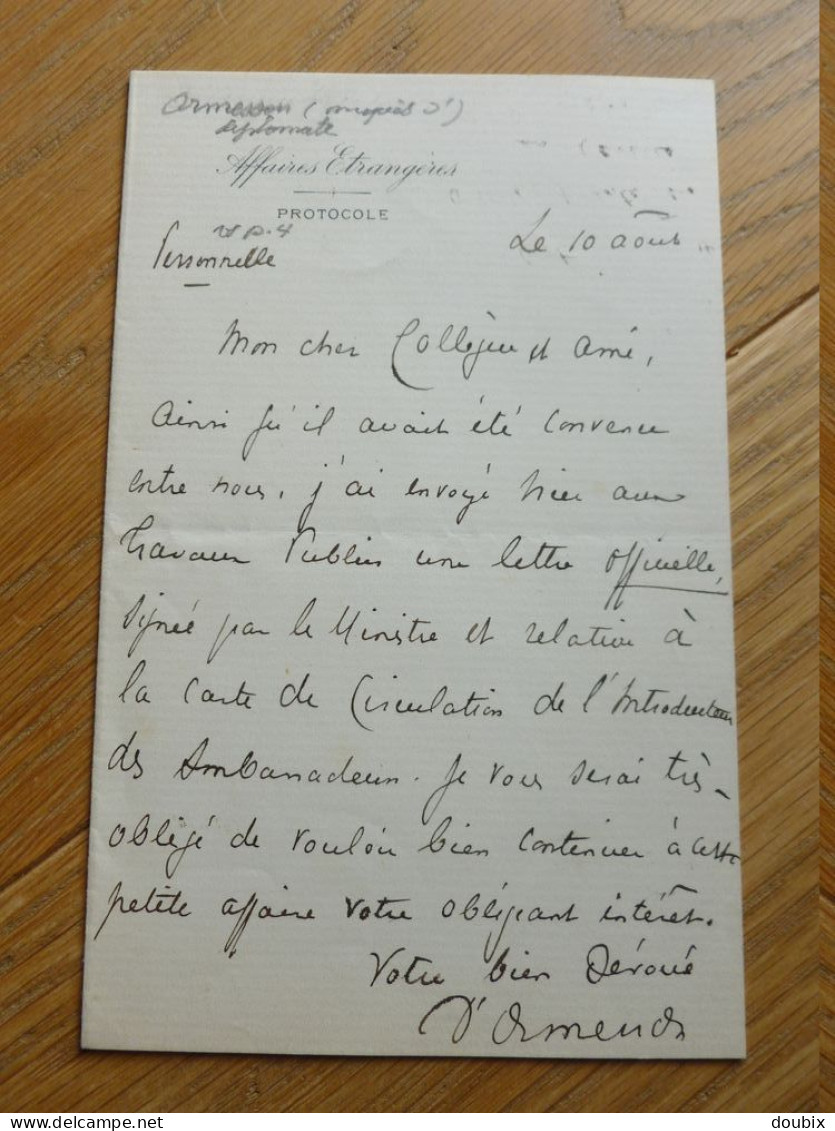 Ormesson (marquis d')
diplomate
Affaires Etrangères
PROTOCOLE
Le 10 août
Personnelle
Mon cher Collègue et Ami,
Ainsi qu'il avait été convenu
entre nous, j'ai envoyé hier aux
Travaux Publics une lettre officielle,
signée par le Ministre et relative à
la carte de Circulation de l'Introducteur
des Ambassadeurs. Je vous serai très-
obligé de vouloir bien continuer à cette
petite affaire votre obligeant intérêt.
Votre bien dévoué
D'Ormesson
delcampe.net
doubix